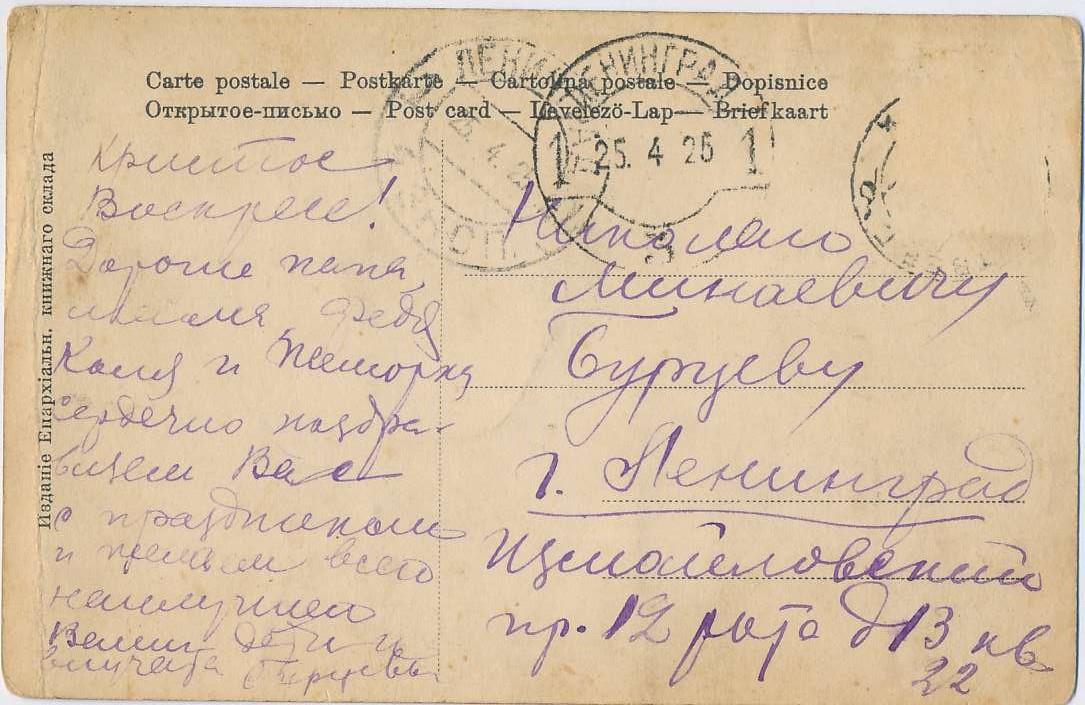 Carte postale — Postkarte — Cartolina postale — Dopisnice
Открытое-письмо — Post card — Levelező-Lap — Briefkaart
Изданіе Епархіальн. книжнаго склада
ЛЕНИНГРАД
1 25. 4 26 1
Христос
Воскресе!
Дорогие папа,
мама, Федя
Коля и
сердечно поздра-
вляем Вас
с праздником
и желаем всего
наилучшего
Ваши дети и
внучата Бурцевы
Николаю
Минаевичу
Бурцеву
г. Ленинград
Измайловский
пр. 12 рота д 13 кв.
22